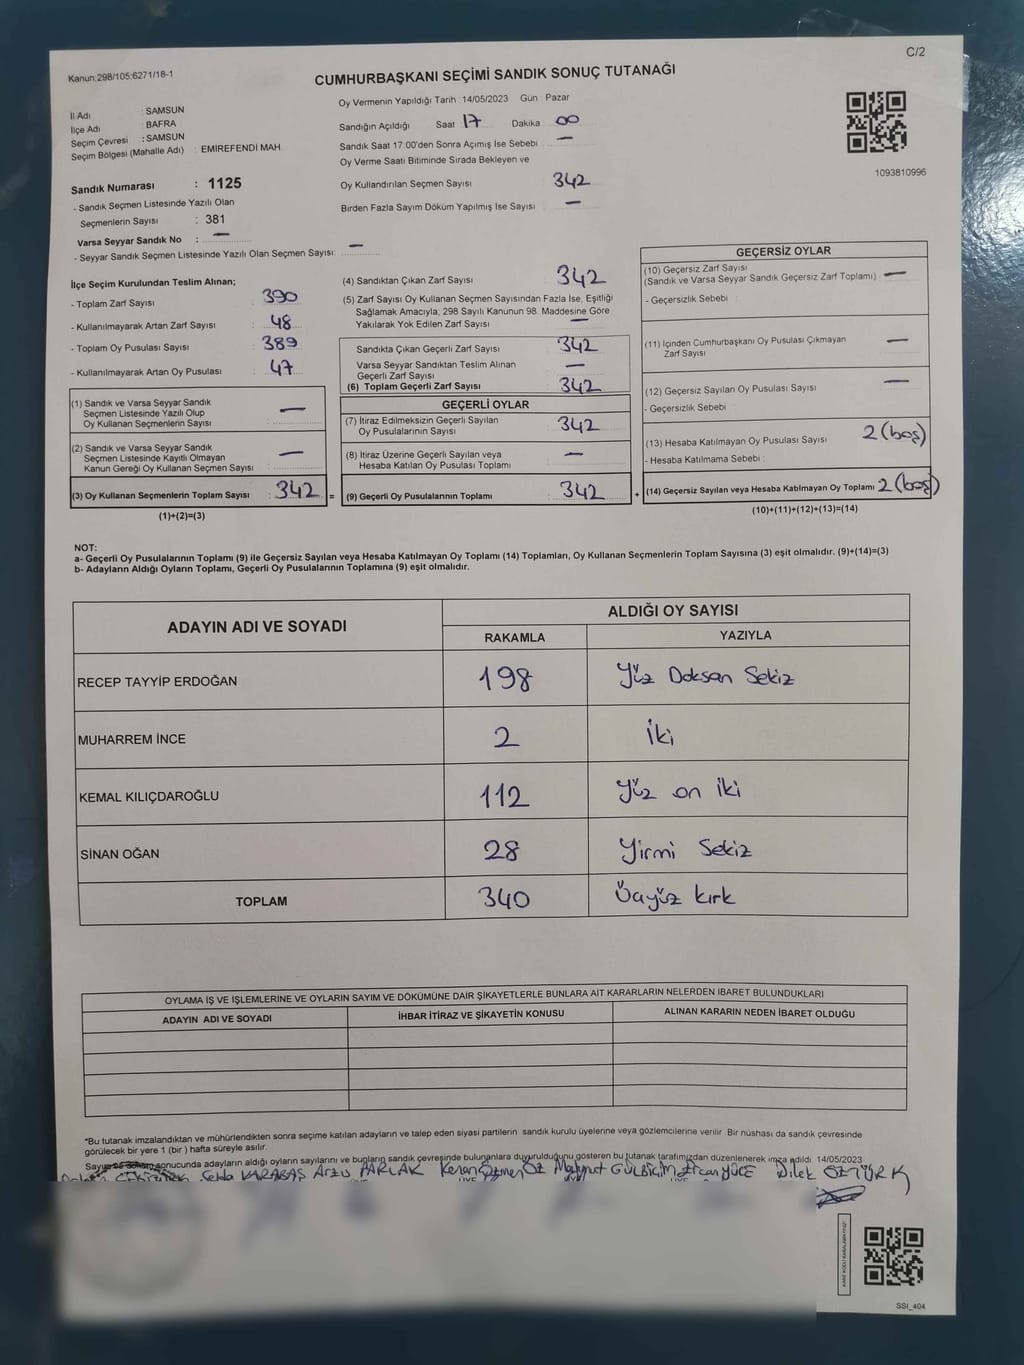 C/2
Kanun:298/105:6271/18-1
CUMHURBAŞKANI SEÇİMİ SANDIK SONUÇ TUTANAĞI
İl Adı : SAMSUN
İlçe Adı BAFRA
Seçim Çevresi : SAMSUN
Seçim Bölgesi (Mahalle Adı) : EMİREFENDİ MAH.
Oy Vermenin Yapıldığı Tarih : 14/05/2023 Gün : Pazar
Sandığın Açıldığı Saat 17 Dakika 00
Sandık Saat 17:00'den Sonra Açımış İse Sebebi —
Oy Verme Saati Bitiminde Sırada Bekleyen ve
Oy Kullandırılan Seçmen Sayısı 342
Birden Fazla Sayım Döküm Yapılmış İse Sayısı —
1093810996
Sandık Numarası : 1125
- Sandık Seçmen Listesinde Yazılı Olan
Seçmenlerin Sayısı : 381
Varsa Seyyar Sandık No : —
- Seyyar Sandık Seçmen Listesinde Yazılı Olan Seçmen Sayısı: —
İlçe Seçim Kurulundan Teslim Alınan;
- Toplam Zarf Sayısı : 390
- Kullanılmayarak Artan Zarf Sayısı : 48
- Toplam Oy Pusulası Sayısı : 389
- Kullanılmayarak Artan Oy Pusulası : 47
(1) Sandık ve Varsa Seyyar Sandık
Seçmen Listesinde Yazılı Olup
Oy Kullanan Seçmenlerin Sayısı : —
(2) Sandık ve Varsa Seyyar Sandık
Seçmen Listesinde Kayıtlı Olmayan
Kanun Gereği Oy Kullanan Seçmen Sayısı : —
(3) Oy Kullanan Seçmenlerin Toplam Sayısı : 342 =
(1)+(2)=(3)
(4) Sandıktan Çıkan Zarf Sayısı 342
(5) Zarf Sayısı Oy Kullanan Seçmen Sayısından Fazla İse, Eşitliği
Sağlamak Amacıyla; 298 Sayılı Kanunun 98. Maddesine Göre
Yakılarak Yok Edilen Zarf Sayısı —
Sandıkta Çıkan Geçerli Zarf Sayısı 342
Varsa Seyyar Sandıktan Teslim Alınan
Geçerli Zarf Sayısı —
(6) Toplam Geçerli Zarf Sayısı 342
GEÇERLİ OYLAR
(7) İtiraz Edilmeksizin Geçerli Sayılan
Oy Pusulalarının Sayısı 342
(8) İtiraz Üzerine Geçerli Sayılan veya
Hesaba Katılan Oy Pusulası Toplamı —
(9) Geçerli Oy Pusulalarının Toplamı : 342 +
GEÇERSİZ OYLAR
(10) Geçersiz Zarf Sayısı
(Sandık ve Varsa Seyyar Sandık Geçersiz Zarf Toplamı) —
- Geçersizlik Sebebi :
(11) İçinden Cumhurbaşkanı Oy Pusulası Çıkmayan
Zarf Sayısı —
(12) Geçersiz Sayılan Oy Pusulası Sayısı —
- Geçersizlik Sebebi :
(13) Hesaba Katılmayan Oy Pusulası Sayısı 2 (boş)
- Hesaba Katılmama Sebebi :
(14) Geçersiz Sayılan veya Hesaba Katılmayan Oy Toplamı 2 (boş)
(10)+(11)+(12)+(13)=(14)
NOT:
a- Geçerli Oy Pusulalarının Toplamı (9) ile Geçersiz Sayılan veya Hesaba Katılmayan Oy Toplamı (14) Toplamları, Oy Kullanan Seçmenlerin Toplam Sayısına (3) eşit olmalıdır. (9)+(14)=(3)
b- Adayların Aldığı Oyların Toplamı, Geçerli Oy Pusulalarının Toplamına (9) eşit olmalıdır.
ADAYIN ADI VE SOYADI ALDIĞI OY SAYISI
RAKAMLA YAZIYLA
RECEP TAYYİP ERDOĞAN 198 Yüz Doksan Sekiz
MUHARREM İNCE 2 İki
KEMAL KILIÇDAROĞLU 112 Yüz on iki
SİNAN OĞAN 28 Yirmi Sekiz
TOPLAM 340 Üçyüz kırk
OYLAMA İŞ VE İŞLEMLERİNE VE OYLARIN SAYIM VE DÖKÜMÜNE DAİR ŞİKAYETLERLE BUNLARA AİT KARARLARIN NELERDEN İBARET BULUNDUKLARI
ADAYIN ADI VE SOYADI İHBAR İTİRAZ VE ŞİKAYETİN KONUSU ALINAN KARARIN NEDEN İBARET OLDUĞU
*Bu tutanak imzalandıktan ve mühürlendikten sonra seçime katılan adayların ve talep eden siyasi partilerin sandık kurulu üyelerine veya gözlemcilerine verilir. Bir nüshası da sandık çevresinde
görülecek bir yere 1 (bir) hafta süreyle asılır.
sonucunda adayların aldığı oyların sayılarını ve bunların sandık çevresinde bulunanlara duyurulduğunu gösteren bu tutanak tarafımızdan düzenlenerek imza edildi. 14/05/2023
Selda KARABAŞ Arzu PARLAK Kenan Özmen ÖZ Mahmut GÜLBİÇİM Ercan YÜCE Dilek ÖZTÜRK
KARE KODU KARALAMAYINIZ!
SSI_404